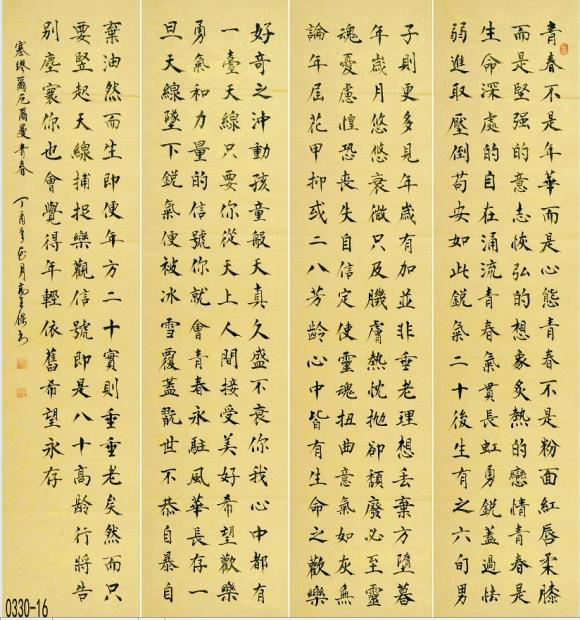 青春不是年華而是心態青春不是粉面紅唇柔膝
而是堅强的意志恢弘的想象炙熱的戀情青春是
生命深處的自在涌流青春氣貫長虹勇銳蓋過怯
弱進取壓倒苟安如此銳氣二十後生有之六旬男
子則更多見年歲有加並非垂老理想丟棄方墮暮
年歲月悠悠衰微只及肌膚熱忱拋卻頹廢必至靈
魂憂慮惶恐喪失自信定使靈魂扭曲意氣如灰無
論年屆花甲抑或二八芳龄心中皆有生命之歡樂
好奇之沖動孩童般天真久盛不衰你我心中都有
一臺天線只要你從天上人間接受美好希望歡樂
勇氣和力量的信號你就會青春永駐風華長存一
旦天線墜下銳氣便被冰雪覆蓋翫世不恭自暴自
棄油然而生即便年方二十實則垂垂老矣然而只
要竪起天線捕捉樂觀信號即是八十高龄行將告
別塵寰你也會覺得年輕依舊希望永存
塞繆爾厄爾曼青春 丁酉年
0330-16